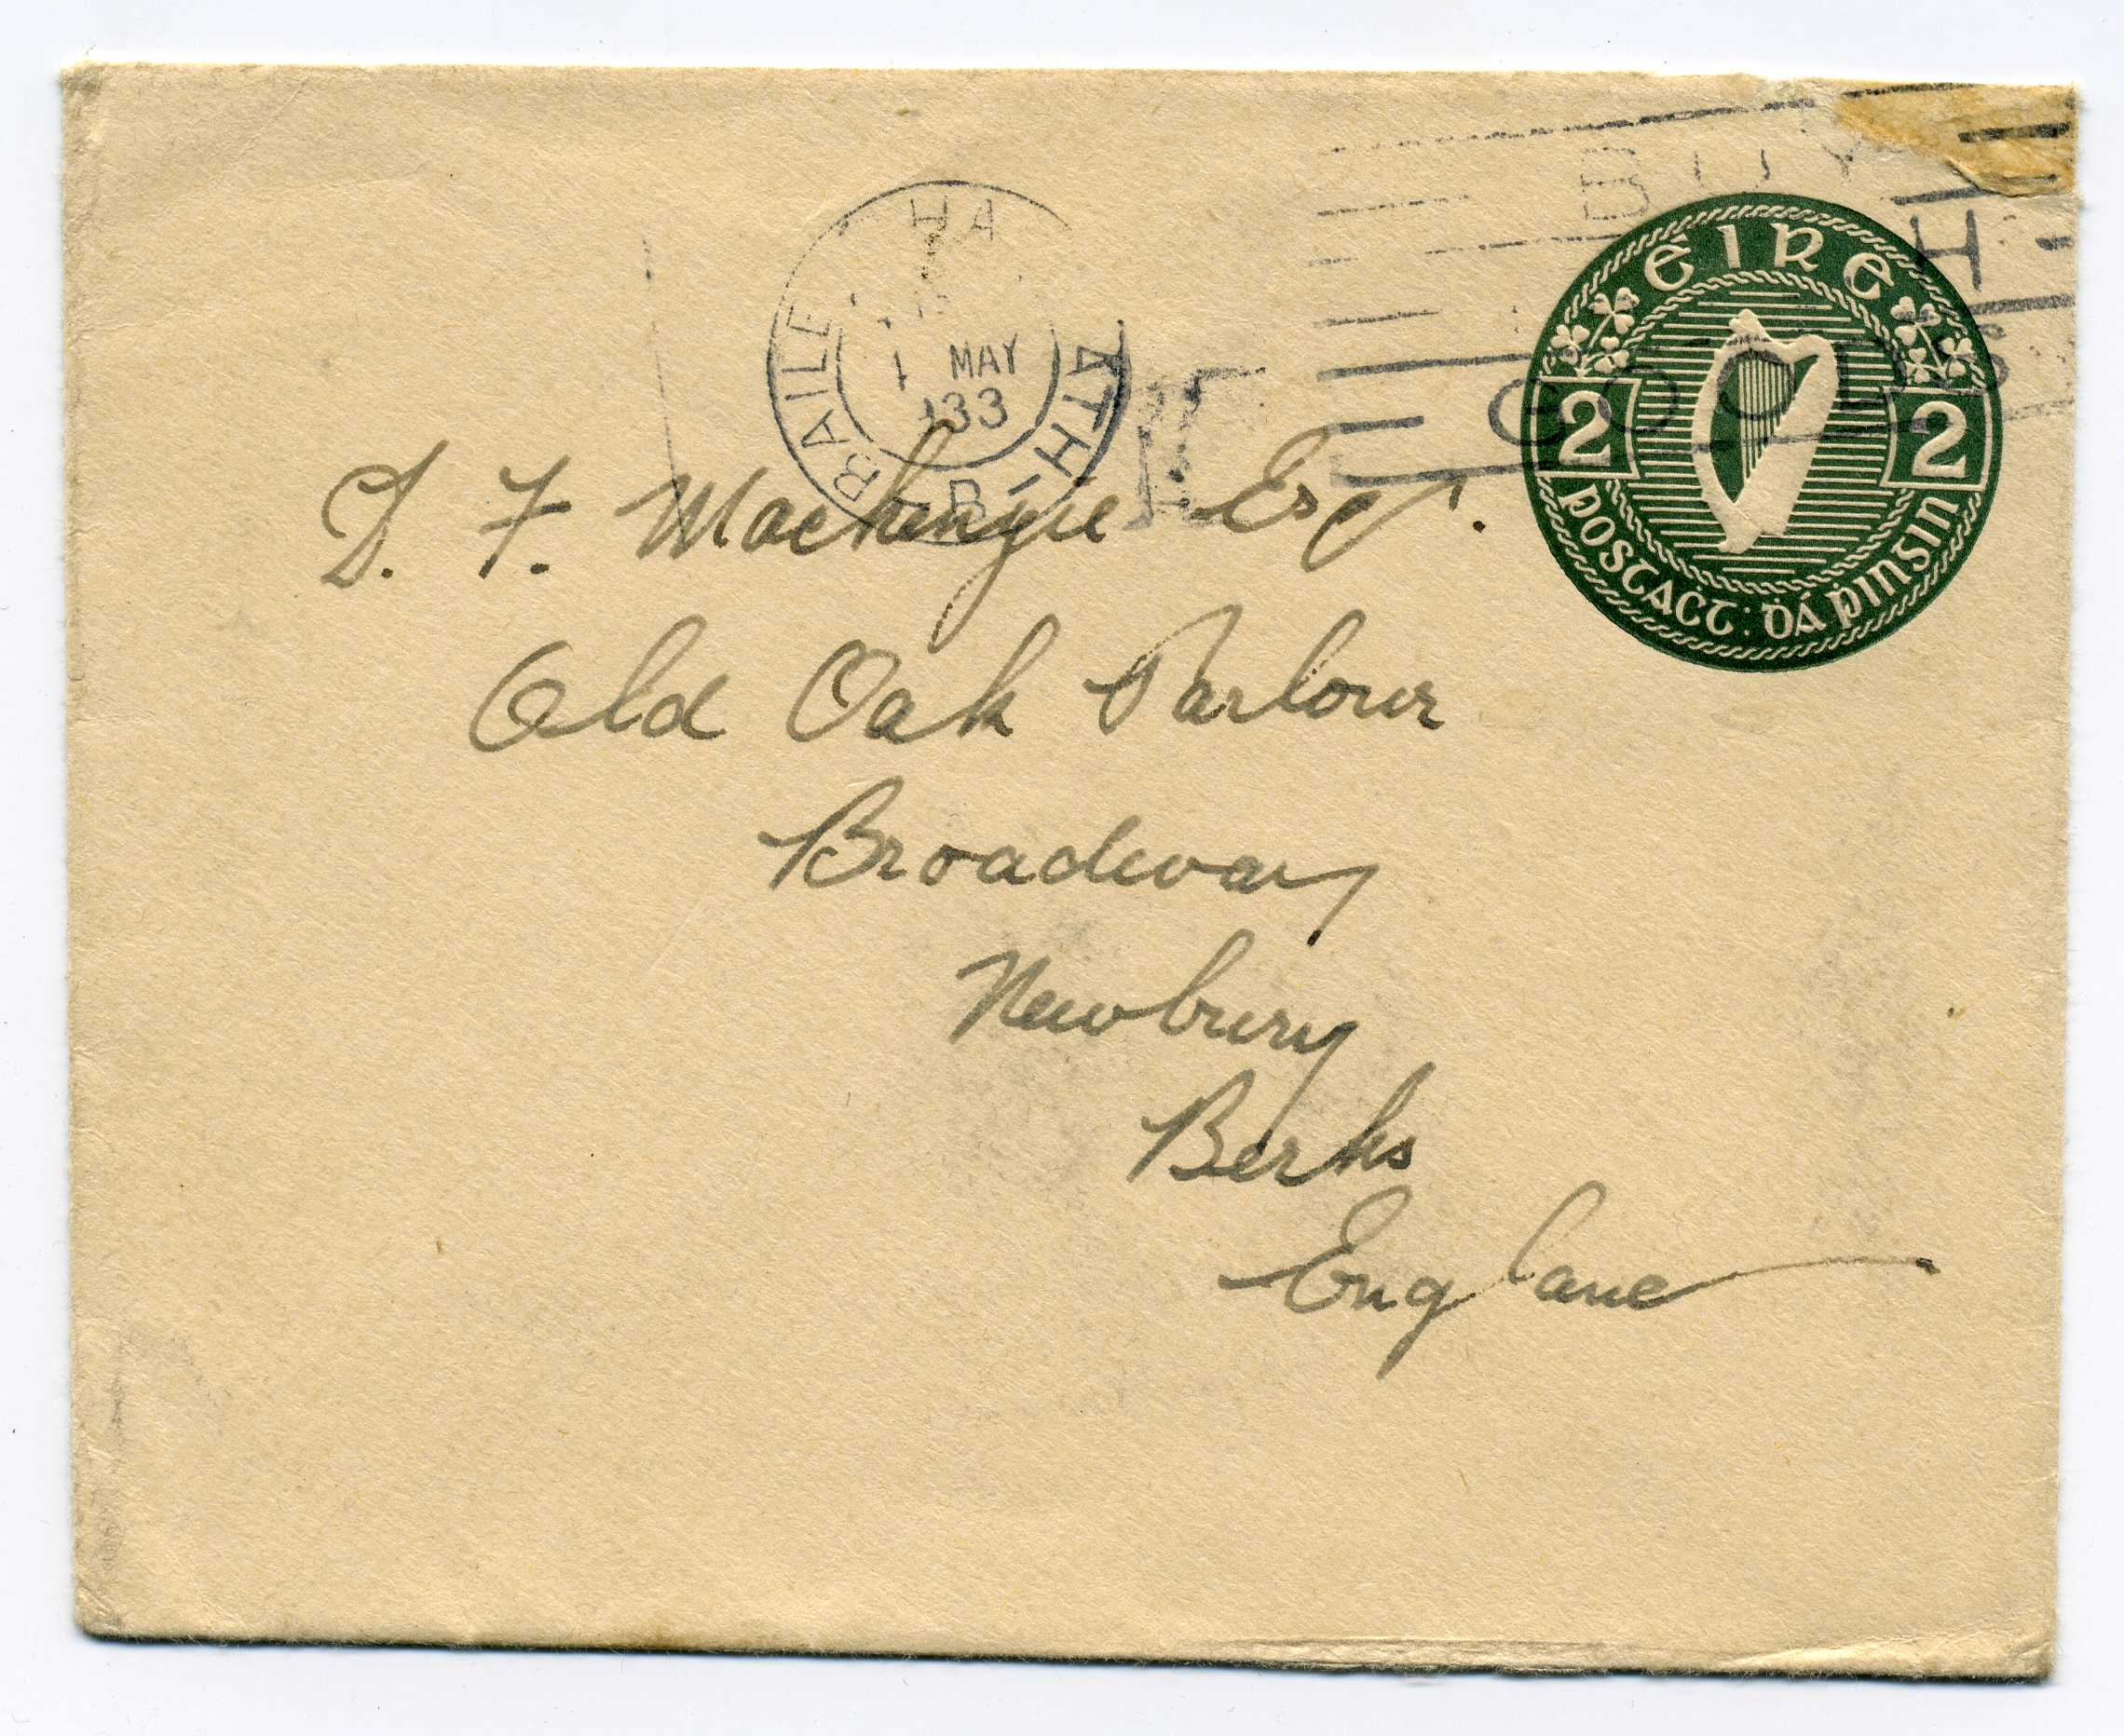 BAILE ÁTHA
CLIATH-B
1 MAY
33
BUY
GOODS
ÉIRE
2 2
POSTAĊT: ḊÁ ṖINSIN
D. F. Mackenzie Esqr.
Old Oak Parlour
Broadway
Newbury
Berks
England